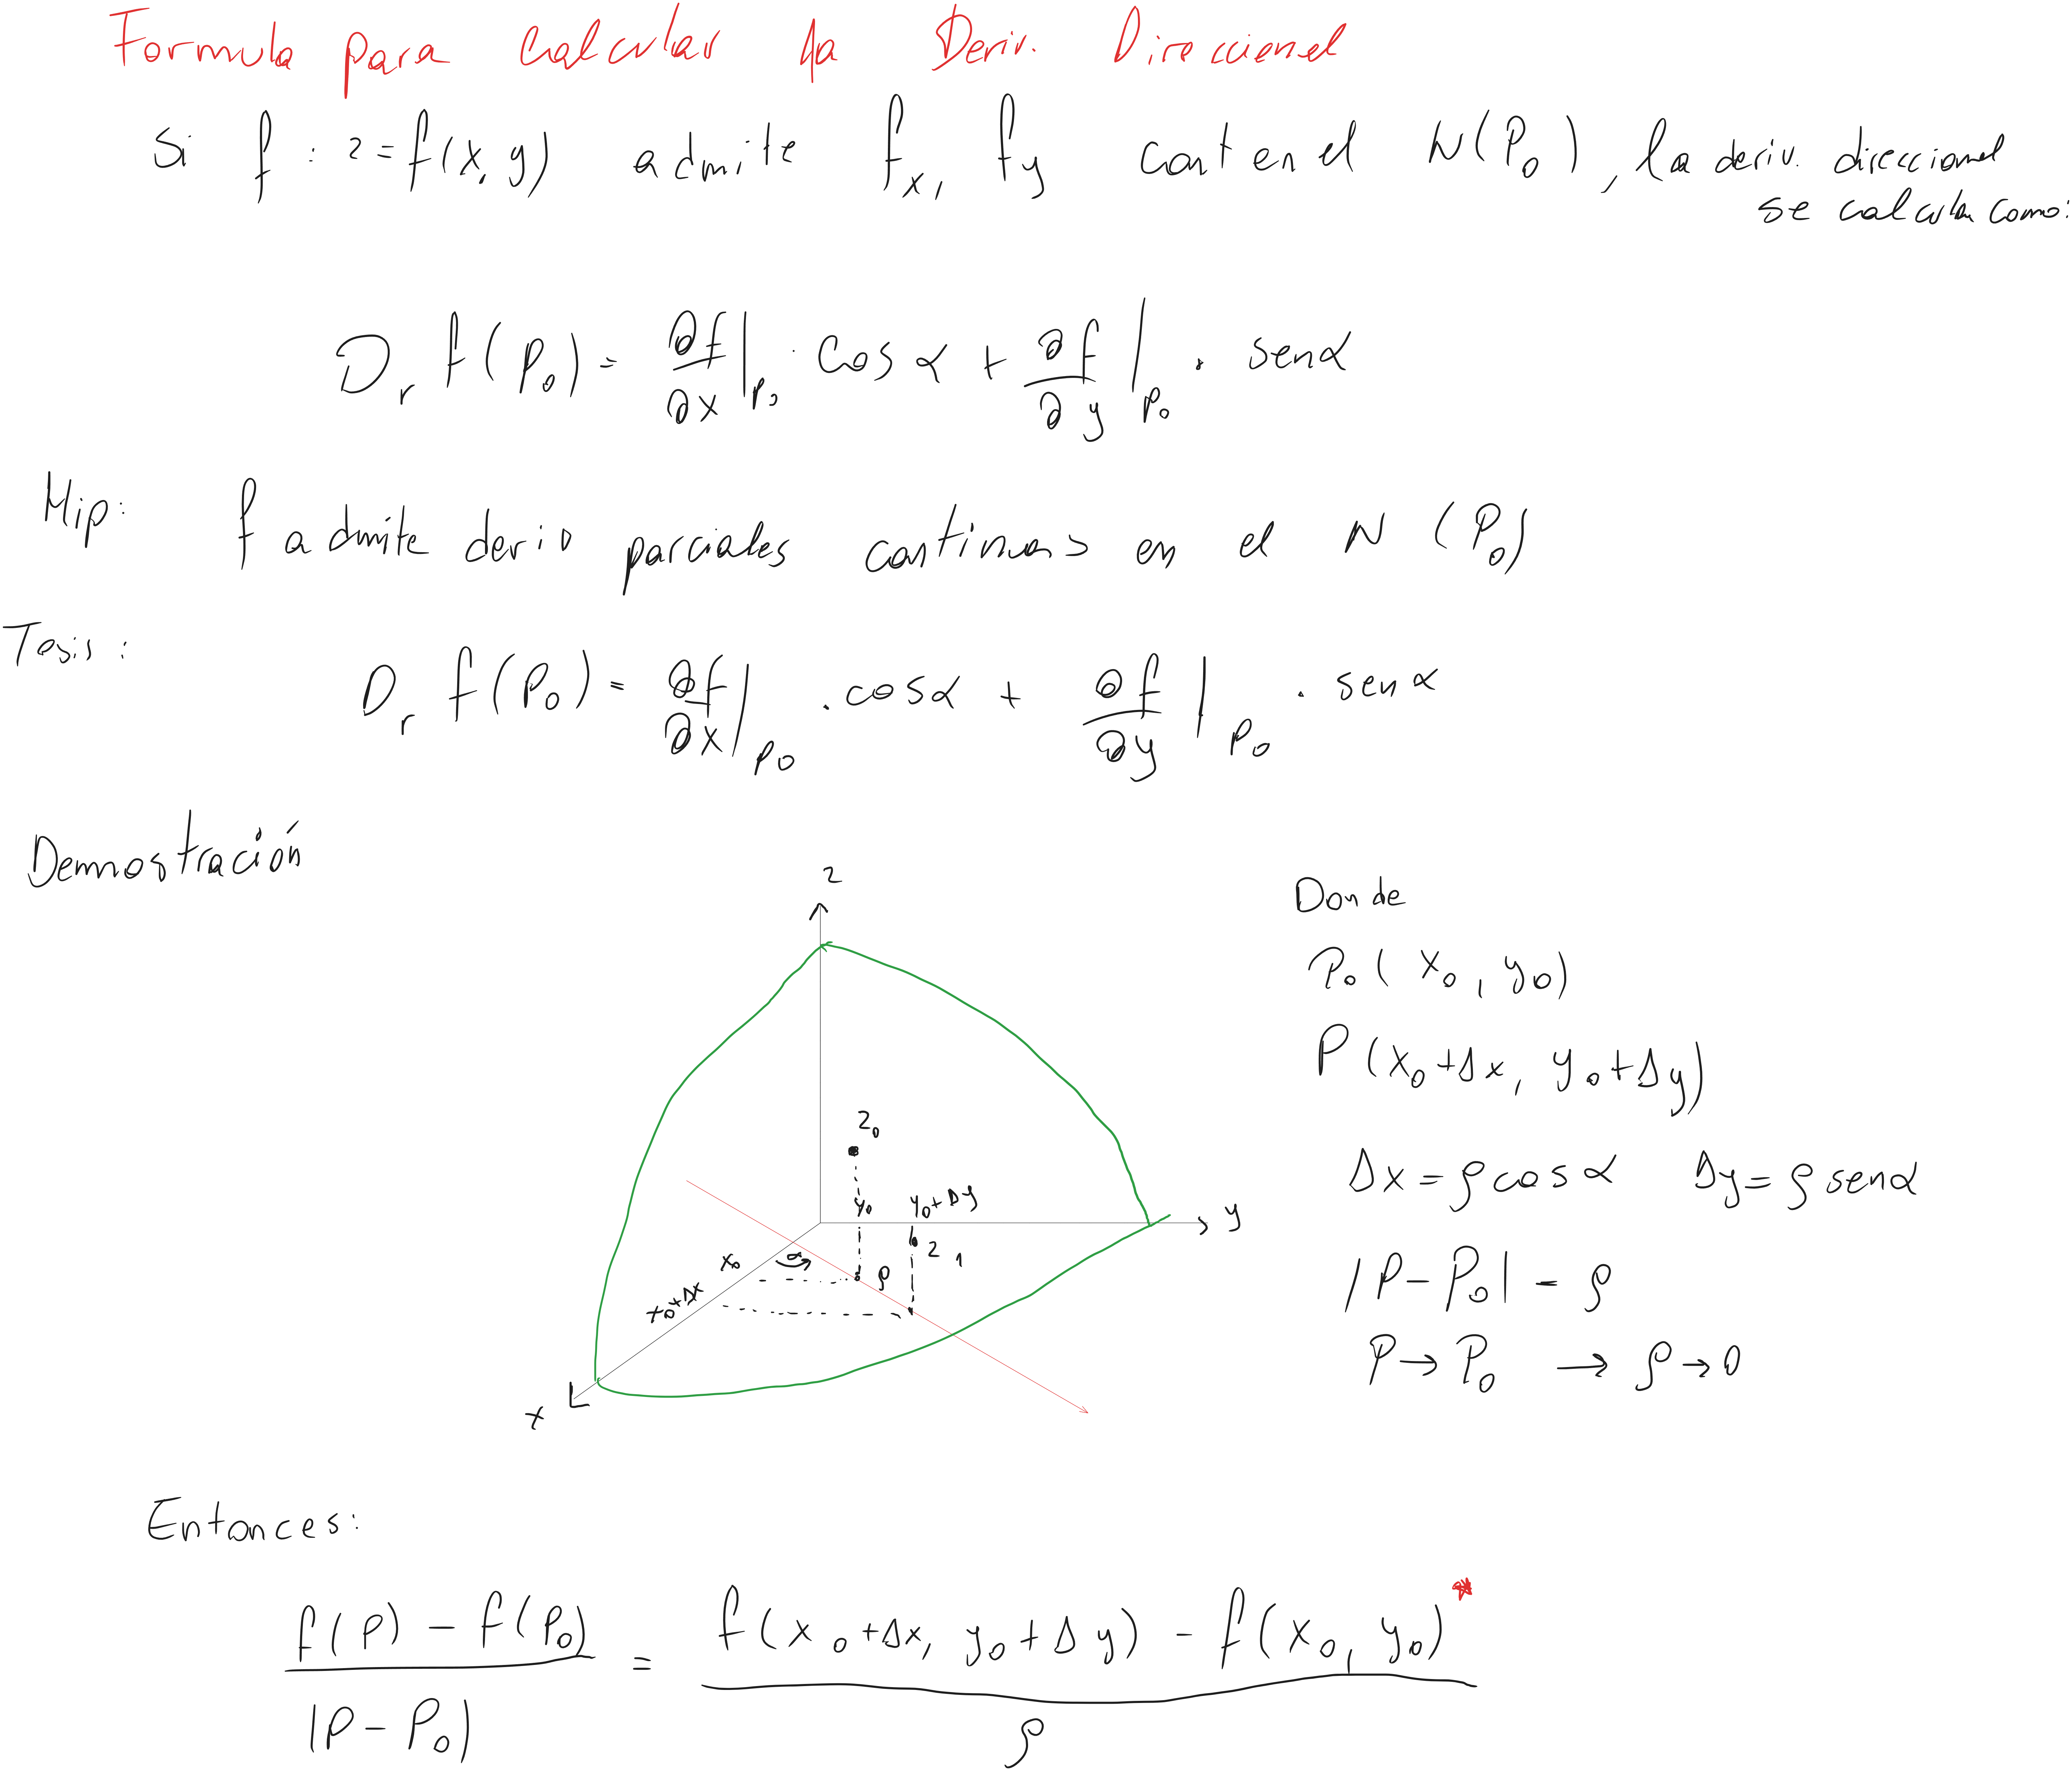 Formula para Calcular la Deriv. Direccional
Si f : z = f(x, y) admite fx, fy cont en el N(P₀), la deriv. direccional
se calcula como:
Dr f(P₀) = ∂f/∂x|P₀ · cos α + ∂f/∂y|P₀ · sen α
Hip: f admite deriv parciales continuas en el N (P₀)
Tesis:
Dr f(P₀) = ∂f/∂x|P₀ · cos α + ∂f/∂y|P₀ · sen α
Demostración
z
Donde
P₀ (x₀, y₀)
P (x₀+Δx, y₀+Δy)
z₀
Δx = ρ cos α Δy = ρ sen α
y₀ y₀+Δy
y
z₁
x₀ α ρ
x₀+Δx
|P - P₀| = ρ
P → P₀ → ρ → 0
x
Entonces:
(f(P) - f(P₀)) / |P - P₀| = (f(x₀+Δx, y₀+Δy) - f(x₀, y₀)) / ρ *